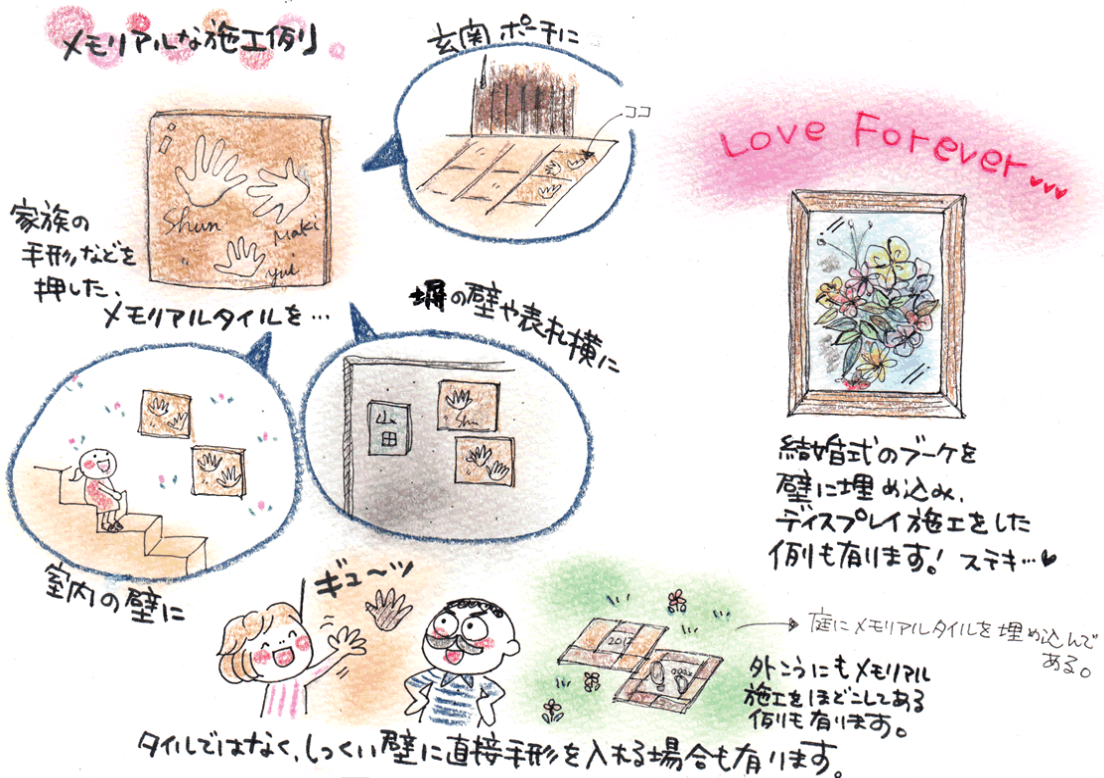 メモリアルな施工例
玄関ポーチに
ココ
Shun
Maki
yui
家族の
手形などを
押した、
メモリアルタイルを…
塀の壁や表札横に
山田
Shu
室内の壁に
Love Forever…
結婚式のブーケを
壁に埋め込み、
ディスプレイ施工をした
例も有ります！ステキ…
ギュ〜ッ
2017
庭にメモリアルタイルを埋め込んで
ある。
外こうにもメモリアル
施工をほどこしてある
例も有ります。
タイルではなく、しっくい壁に直接手形を入れる場合も有ります。